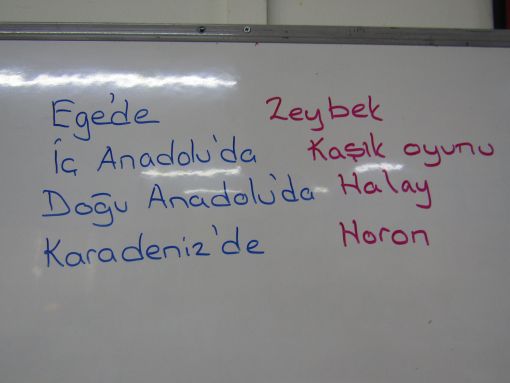 Ege'de Zeybek
İç Anadolu'da Kaşık oyunu
Doğu Anadolu'da Halay
Karadeniz'de Horon